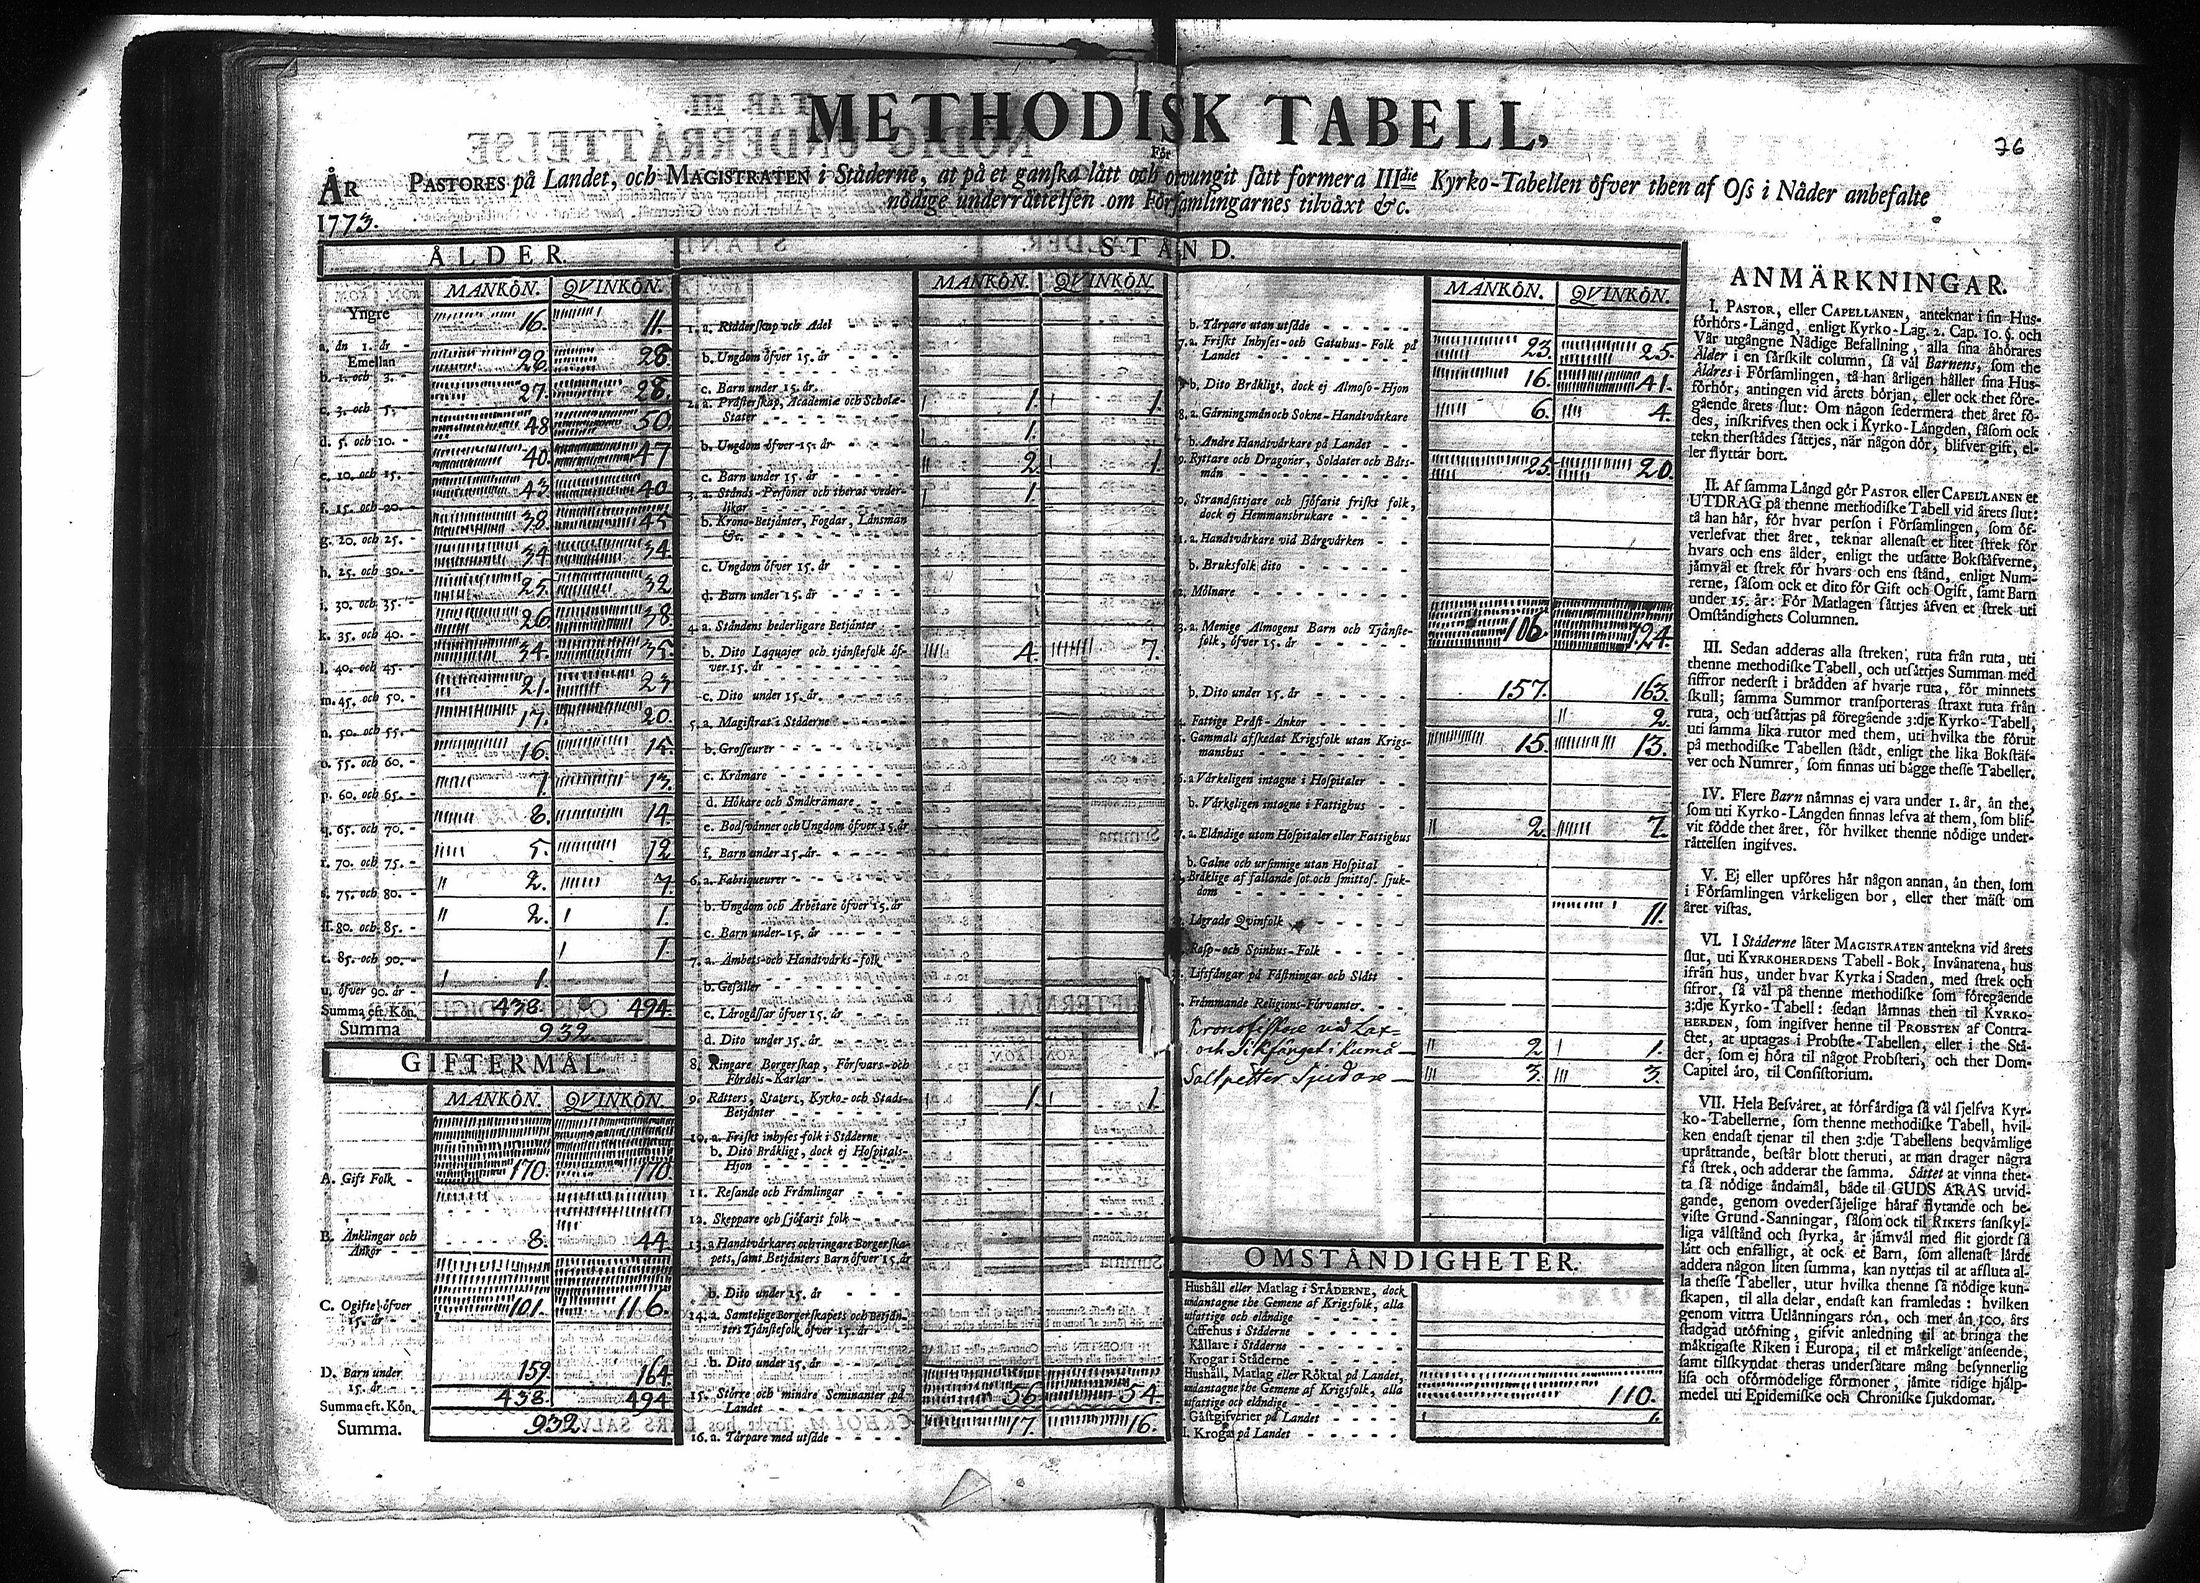 METHODISK TABELL,
76
För
ÅR PASTORES på Landet, och MAGISTRATEN i Städerne, at på et ganska lätt och otvungit sätt formera IIIdie Kyrko-Tabellen öfver then af Oss i Nåder anbefalte
1773. nödige underrättelsen om Församlingarnes tilväxt &c.
ÅLDER.
MANKÖN. QVINKÖN.
Yngre
a. än 1. år - 16. 11.
Emellan
b. 1. och 3. - 28. 28
c. 3. och 5. 27. 28.
d. 5. och 10. - 48. 50.
e. 10. och 15. 40. 47
f. 15. och 20. 43. 40
g. 20. och 25. - 38. 45
h. 25. och 30. - 34 34.
i. 30. och 35. 25. 32
k. 35. och 40. - 26. 38
l. 40. och 45. 34. 35.
m. 45. och 50. - 21. 23
n. 50. och 55. 17. 20.
o. 55. och 60. - 16. 15.
p. 60. och 65. - 1. 13.
q. 65. och 70. - 8. 14.
r. 70. och 75. - 5. 12
s. 75. och 80. - 2. 7.
ff. 80. och 85. - 2. 1.
t. 85. och 90. - 1.
u. öfver 90. år - 1.
Summa eft. Kön. 438. 494.
Summa 932.
GIFTERMÅL.
MANKÖN. QVINKÖN.
A. Gift Folk - 170. 170.
B. Änklingar och
Änkor 8. 44.
C. Ogifte öfver
15. år - 101. 116.
D. Barn under
15. år - 159. 164.
Summa eft. Kön. 438. 494
Summa. 932
STÅND.
MANKÖN. QVINKÖN.
1. a. Ridderskap och Adel
b. Ungdom öfver 15. år
c. Barn under 15. år.
2. a. Prästerskap, Academiæ och Scholæ-
Stater 1. 1.
b. Ungdom öfver 15. år 1.
c. Barn under 15. år 2. 1.
3. a. Stånds-Personer och theras veder-
likar 1.
b. Krono-Betjänter, Fogdar, Länsmän
&c.
c. Ungdom öfver 15. år
d. Barn under 15. år
4. a. Ståndens hederligare Betjänter
b. Dito Laquajer och tjänstefolk öf-
ver 15. år 4. 7.
c. Dito under 15. år.
5. a. Magistrat i Städerne
b. Grosseurer
c. Krämare
d. Hökare och Småkrämare
e. Bodsvänner och Ungdom öfver 15. år
f. Barn under 15. år
6. a. Fabriqueurer
b. Ungdom och Arbetare öfver 15. år
c. Barn under 15. år
7. a. Ämbets- och Handtvärks-folk
b. Gesäller
c. Lärogåssar öfver 15. år
d. Dito under 15. år.
8. Ringare Borgerskap, Försvars- och
Fördels-Karlar
9. Rätters, Staters, Kyrko- och Stads-
Betjänter 1. 1.
10. a. Friskt inhyses folk i Städerne
b. Dito Bräkligt, dock ej Hospitals-
Hjon
11. Resande och Främlingar
12. Skeppare och sjöfarit folk
13. a Handtvärkares och ringare Borgerska-
pets, samt Betjänters Barn öfver 15. år
b. Dito under 15. år
14. a. Samtelige Borgerskapets och Betjän-
ters Tjänstefolk öfver 15. år
b. Dito under 15. år
15. Större och mindre Seminanter på
Landet 56 54.
16. a. Tårpare med utsäde 17. 16.
MANKÖN. QVINKÖN.
b. Tårpare utan utsäde
7. a. Friskt Inhyses- och Gatuhus-Folk på
Landet 23. 25.
b. Dito Bräkligt, dock ej Almoso-Hjon 16. 41.
8. a. Gärningsmän och Sokne-Handtvärkare 6. 4.
b. Andre Handtvärkare på Landet
9. Ryttare och Dragoner, Soldater och Båts-
män 25. 20.
0. Strandsittjare och sjöfarit friskt folk,
dock ej Hemmansbrukare
1. a. Handtvärkare vid Bärgvärken
b. Bruksfolk dito
2. Mölnare
3. a. Menige Almogens Barn och Tjänste-
folk, öfver 15. år 106. 124.
b. Dito under 15. år 157. 163.
4. Fattige Präst-Änkor 2.
5. Gammalt afskedat Krigsfolk utan Krigs-
manshus 15. 13.
6. a Värkeligen intagne i Hospitaler
b. Värkeligen intagne i Fattighus
7. a. Eländige utom Hospitaler eller Fattighus 2. 7.
b. Galne och ursinnige utan Hospital
Bräklige af fallande sot och smittos. sjuk-
dom
Lägrade Qvinfolk 11.
Rasp- och Spinhus-Folk
Lifsfångar på Fästningar och Slått
Främmande Religions-Förvanter.
Kronofiskare vid Lax-
och Sikfånget i Kumå 2 1.
Saltpetter Sjudare 3. 3.
OMSTÄNDIGHETER.
Hushåll eller Matlag i STÄDERNE, dock
undantagne the Gemene af Krigsfolk, alla
utfattige och eländige
Caffehus i Städerne
Källare i Städerne
Krogar i Städerne
Hushåll, Matlag eller Röktal på Landet,
undantagne the Gemene af Krigsfolk, alla
utfattige och eländige 110.
Gästgifverier på Landet 1.
l. Krogar på Landet
ANMÄRKNINGAR.
I. PASTOR, eller CAPELLANEN, anteknar i sin Hus-
förhörs-Längd, enligt Kyrko-Lag. 2. Cap. 10. §. och
Vår utgångne Nådige Befallning, alla sina åhörares
Ålder i en särskilt column, så väl Barnens, som the
Äldres i Församlingen, tå han årligen håller sina Hus-
förhör, antingen vid årets början, eller ock thet före-
gående årets slut: Om någon sedermera thet året fö-
des, inskrifves then ock i Kyrko-Längden, såsom ock
tekn therstädes sättjes, när någon dör, blifver gift, el-
ler flyttar bort.
II. Af samma Längd gör PASTOR eller CAPELLANEN et
UTDRAG på thenne methodiske Tabell vid årets slut:
tå han här, för hvar person i Församlingen, som öf-
verlefvat thet året, teknar allenast et litet strek för
hvars och ens ålder, enligt the utsatte Bokstäfverne,
jämväl et strek för hvars och ens stånd, enligt Num-
rerne, såsom ock et dito för Gift och Ogift, samt Barn
under 15. år: För Matlagen sättjes äfven et strek uti
Omständighets Columnen.
III. Sedan adderas alla streken, ruta från ruta, uti
thenne methodiske Tabell, och utsättjes Summan med
siffror nederst i brädden af hvarje ruta, för minnets
skull; samma Summor transporteras straxt ruta från
ruta, och utsättjas på föregående 3:dje Kyrko-Tabell,
uti samma lika rutor med them, uti hvilka the förut
på methodiske Tabellen stådt, enligt the lika Bokstäf-
ver och Numrer, som finnas uti bägge thesse Tabeller.
IV. Flere Barn nämnas ej vara under 1. år, än the,
som uti Kyrko-Längden finnas lefva af them, som blif-
vit födde thet året, för hvilket thenne nödige under-
rättelsen ingifves.
V. Ej eller upföres här någon annan, än then, som
i Församlingen värkeligen bor, eller ther mäst om
året vistas.
VI. I Städerne låter MAGISTRATEN antekna vid årets
slut, uti KYRKOHERDENS Tabell-Bok, Invånarena, hus
ifrån hus, under hvar Kyrka i Staden, med strek och
siffror, så väl på thenne methodiske som föregående
3:dje Kyrko-Tabell: sedan lämnas then til KYRKO-
HERDEN, som ingifver henne til PROBSTEN af Contra-
ctet, at uptagas i Probste-Tabellen, eller i the Stä-
der, som ej höra til något Probsteri, och ther Dom-
Capitel äro, til Consistorium.
VII. Hela Besväret, at förfärdiga så väl sjelfva Kyr-
ko-Tabellerne, som thenne methodiske Tabell, hvil-
ken endast tjenar til then 3:dje Tabellens beqvämlige
uprättande, består blott theruti, at man drager några
få strek, och adderar the samma. Sättet at vinna thet-
ta så nödige ändamål, både til GUDS ÄRAS utvid-
gande, genom ovedersäjelige häraf flytande och be-
viste Grund-Sanningar, såsom ock til RIKETS sanskyl-
liga välstånd och styrka, är jämväl med flit gjordt så
lätt och enfalligt, at ock et Barn, som allenast lärde
addera någon liten summa, kan nyttjas til at afsluta al-
la thesse Tabeller, utur hvilka thenne så nödige kun-
skapen, til alla delar, endast kan framledas: hvilken
genom vittra Utlänningars rön, och mer än 100. års
stadgad utöfning, gifvit anledning til at bringa the
mäktigaste Riken i Europa, til et märkeligt anseende,
samt tilskyndat theras undersåtare mång besynnerlig
lisa och oförmodelige förmoner, jämte tidige hjälp-
medel uti Epidemiske och Chroniske sjukdomar.